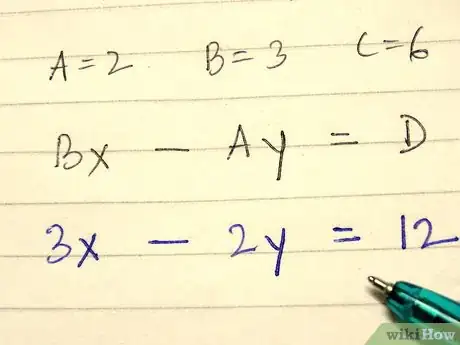 A = 2 B = 3 C = 6
Bx - Ay = D
3x - 2y = 12
wikiHow